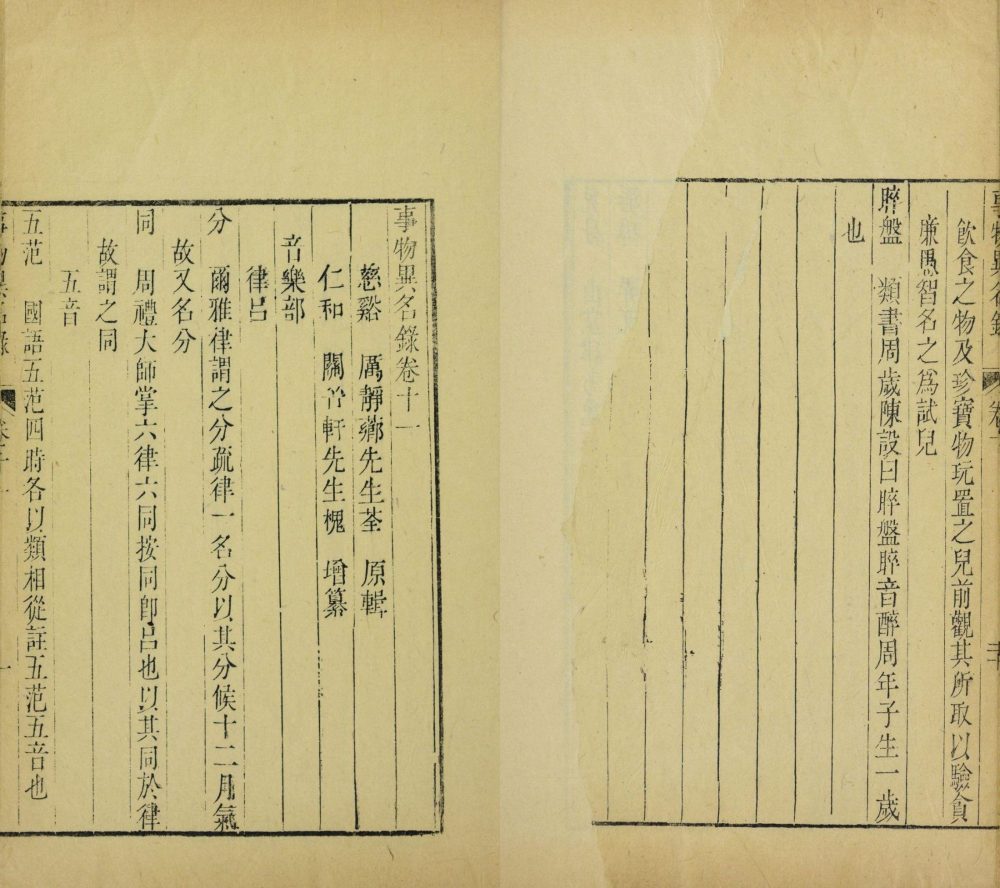 事物異名錄 卷十
飲食之物及珍寶物玩置之兒前觀其所取以驗貪
廉愚智名之爲試兒
晬盤 類書周歲陳設曰晬盤晬音醉周年子生一歲
也
事物異名錄卷十一
慈谿 厲靜薌先生荃 原輯
仁和 關晉軒先生槐 增纂
音樂部
律呂
分 爾雅律謂之分疏律一名分以其分候十二月氣
故又名分
同 周禮大師掌六律六同按同即呂也以其同於律
故謂之同
五音
五范 國語五范四時各以類相從註五范五音也
事物異名錄 卷十一 一